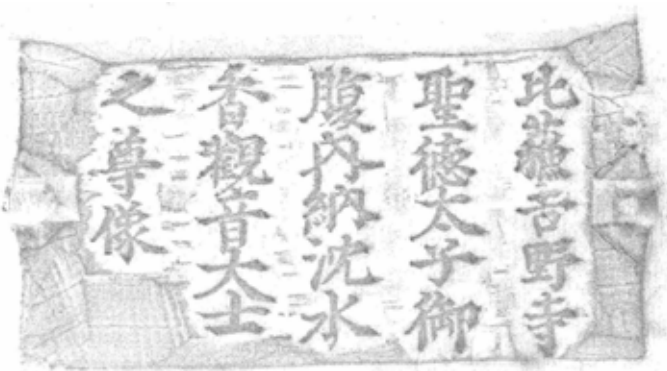 比蘓吾野寺
聖徳太子御
腹内納沈水
香觀音大士
之尊像